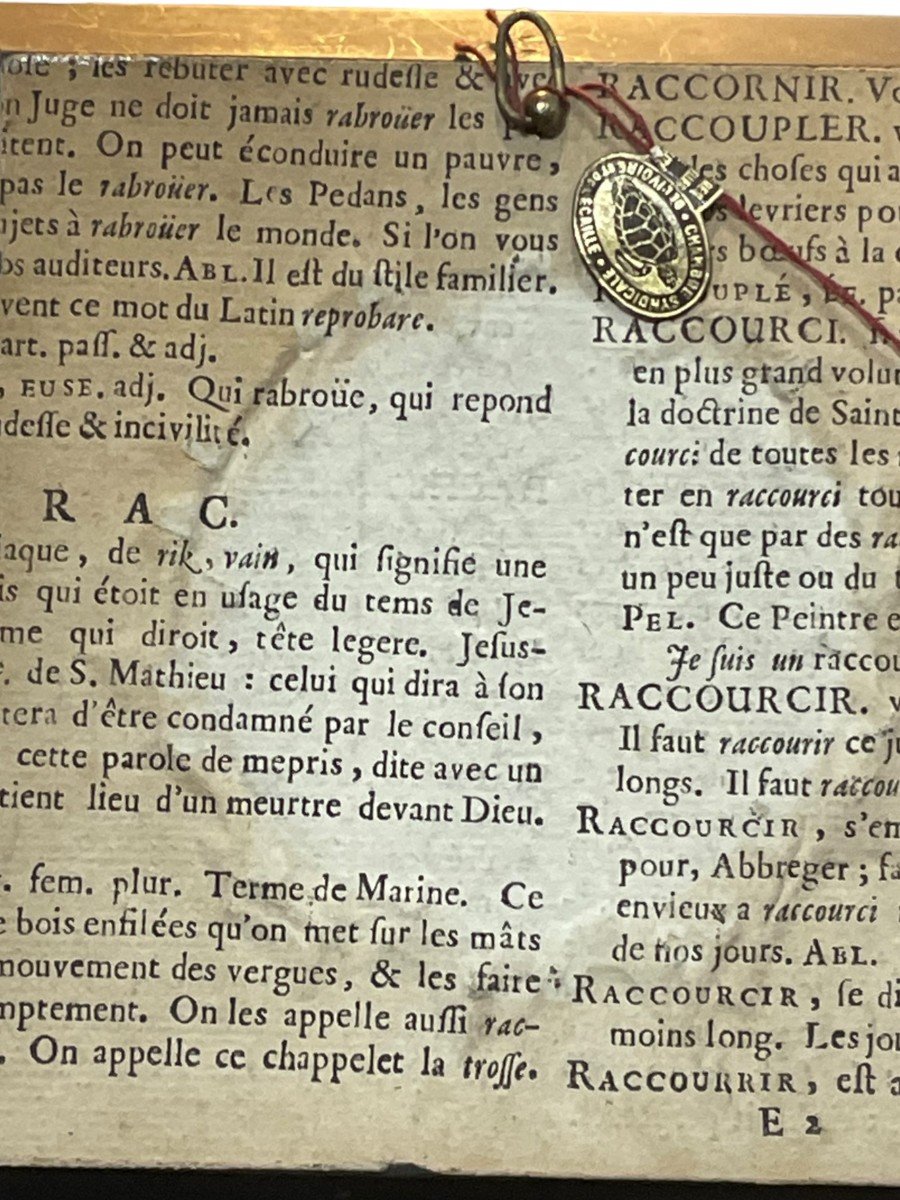 les rebuter avec rudeſſe & avec
Juge ne doit jamais rabroüer les
On peut éconduire un pauvre,
pas le rabroüer. Les Pedans, les gens
ujets à rabroüer le monde. Si l'on vous
os auditeurs. ABL. Il eſt du ſtile familier.
vent ce mot du Latin reprobare.
art. paſſ. & adj.
, EUSE. adj. Qui rabroüe, qui repond
udeſſe & incivilité.
R A C.
iaque, de rik, vain, qui ſignifie une
is qui étoit en uſage du tems de Je-
me qui diroit, tête legere. Jeſus-
. de S. Mathieu : celui qui dira à ſon
itera d'être condamné par le conſeil,
cette parole de mepris, dite avec un
tient lieu d'un meurtre devant Dieu.
. fem. plur. Terme de Marine. Ce
e bois enfilées qu'on met ſur les mâts
mouvement des vergues, & les faire
mptement. On les appelle auſſi rac-
. On appelle ce chappelet la troſſe.
RACCORNIR. Vo
RACCOUPLER. v
des choſes qui a
levriers pou
s bœufs à la c
UPLÉ, ÉE. pa
RACCOURCI.
en plus grand volum
la doctrine de Saint
courci de toutes les
ter en raccourci tou
n'eſt que par des ra
un peu juſte ou du t
PEL. Ce Peintre e
Je ſuis un raccou
RACCOURCIR. v
Il faut raccourir ce ju
longs. Il faut raccou
RACCOURCIR, s'em
pour, Abbreger ; fa
envieux a raccourci
de nos jours. ABL.
RACCOURCIR, ſe di
moins long. Les jou
RACCOURRIR, eſt a
E 2
CHAMBRE SYNDICALE